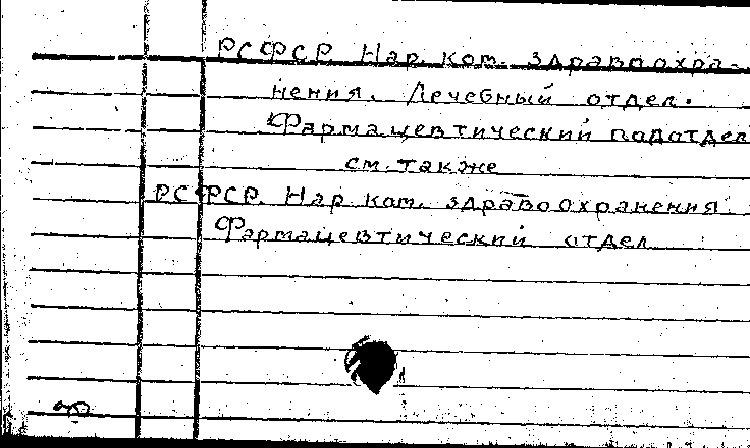 РСФСР Нар. ком. здравоохра-
нения. Лечебный отдел.
Фармацевтический подотдел
см. также
РСФСР. Нар. ком. здравоохранения
Фармацевтический отдел